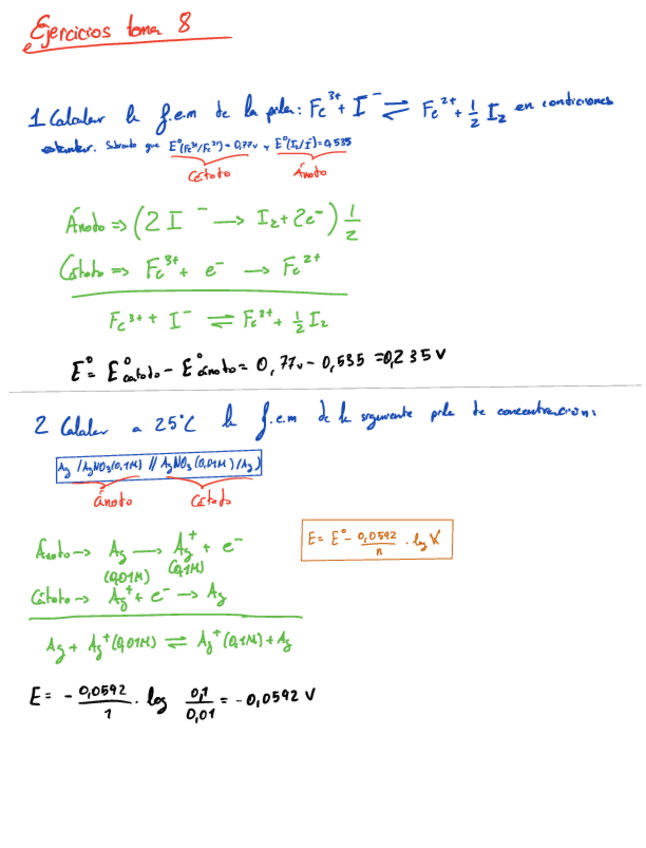 Ejercicios tema 8
1 Calcular la f.e.m de la pila: Fe³⁺ + I⁻ ⇌ Fe²⁺ + 1/2 I₂ en condiciones
estandar. Sabiendo que E°(Fe³⁺/Fe²⁺) = 0,77v y E°(I₂/I⁻) = 0,535
Cátodo Ánodo
Ánodo => (2 I⁻ → I₂ + 2e⁻) 1/2
Cátodo => Fe³⁺ + e⁻ → Fe²⁺
Fe³⁺ + I⁻ ⇌ Fe²⁺ + 1/2 I₂
E° = E°cátodo - E°ánodo = 0,77v - 0,535 = 0,235 V
2 Calcular a 25°C la f.e.m de la siguiente pila de concentración:
Ag / AgNO₃ (0,1M) // AgNO₃ (0,01M) / Ag)
ánodo Cátodo
Ánodo → Ag → Ag⁺ + e⁻
(0,01M) (0,1M)
E = E° - 0,0592/n · log K
Cátodo → Ag⁺ + e⁻ → Ag
Ag + Ag⁺ (0,01M) ⇌ Ag⁺ (0,1M) + Ag
E = - 0,0592/1 · log 0,1/0,01 = - 0,0592 V